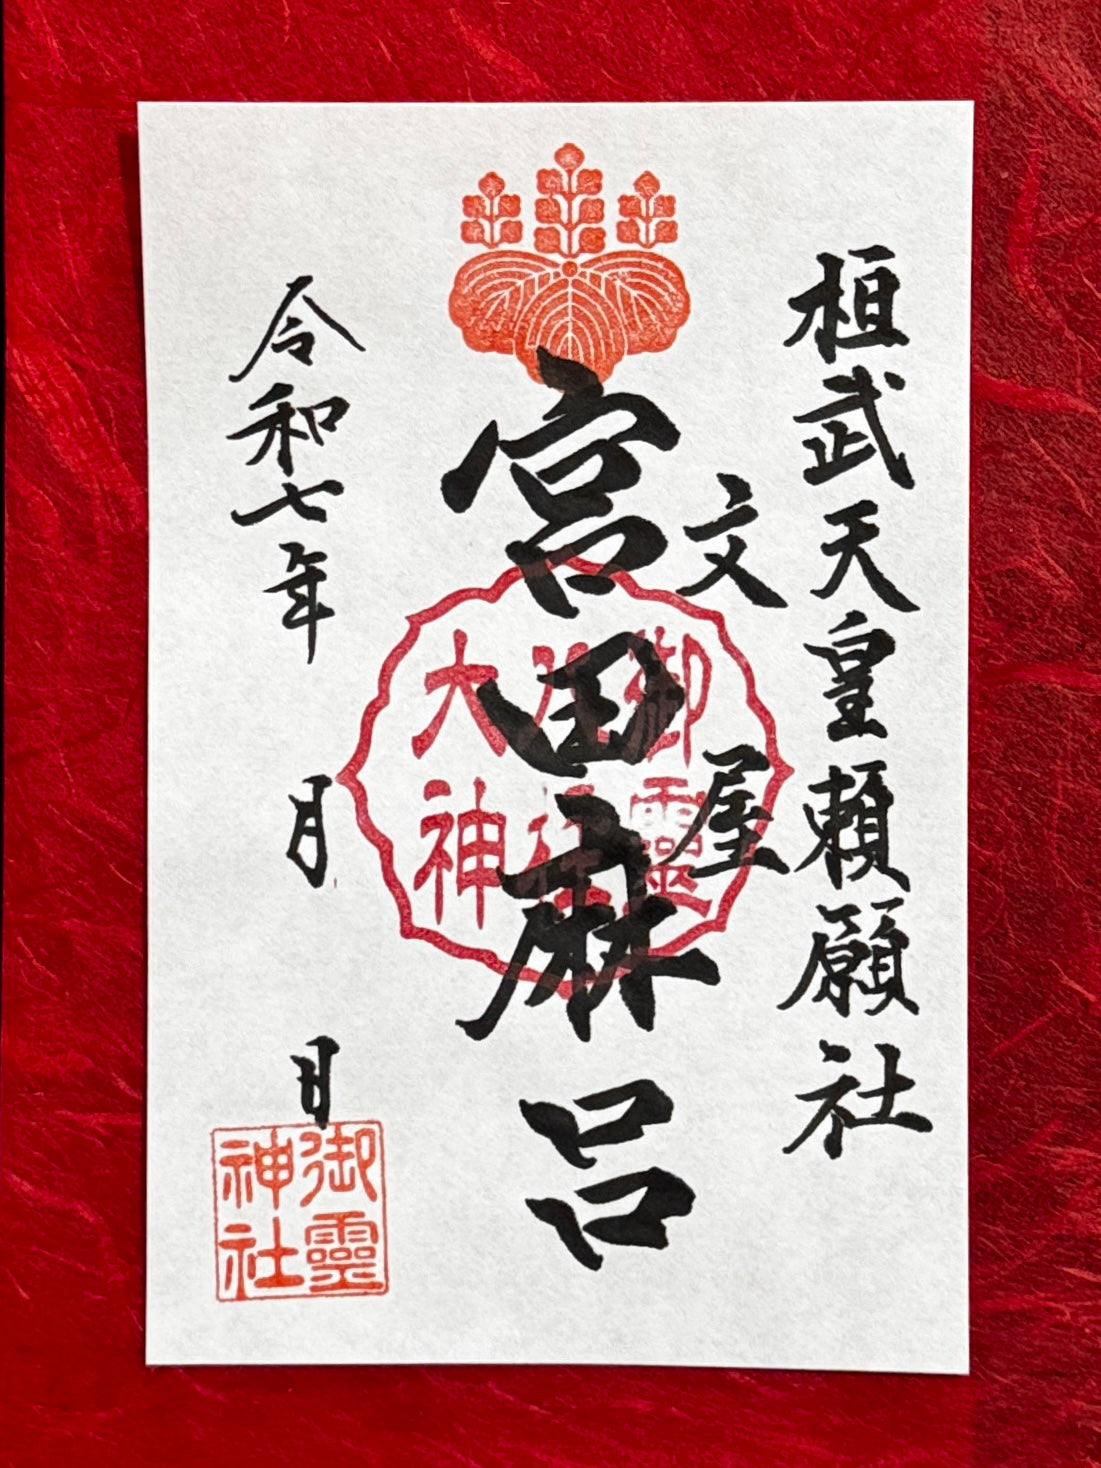 桓武天皇頼願社
文屋
宮田麻呂
令和七年 月 日
御靈
大神
御靈神社